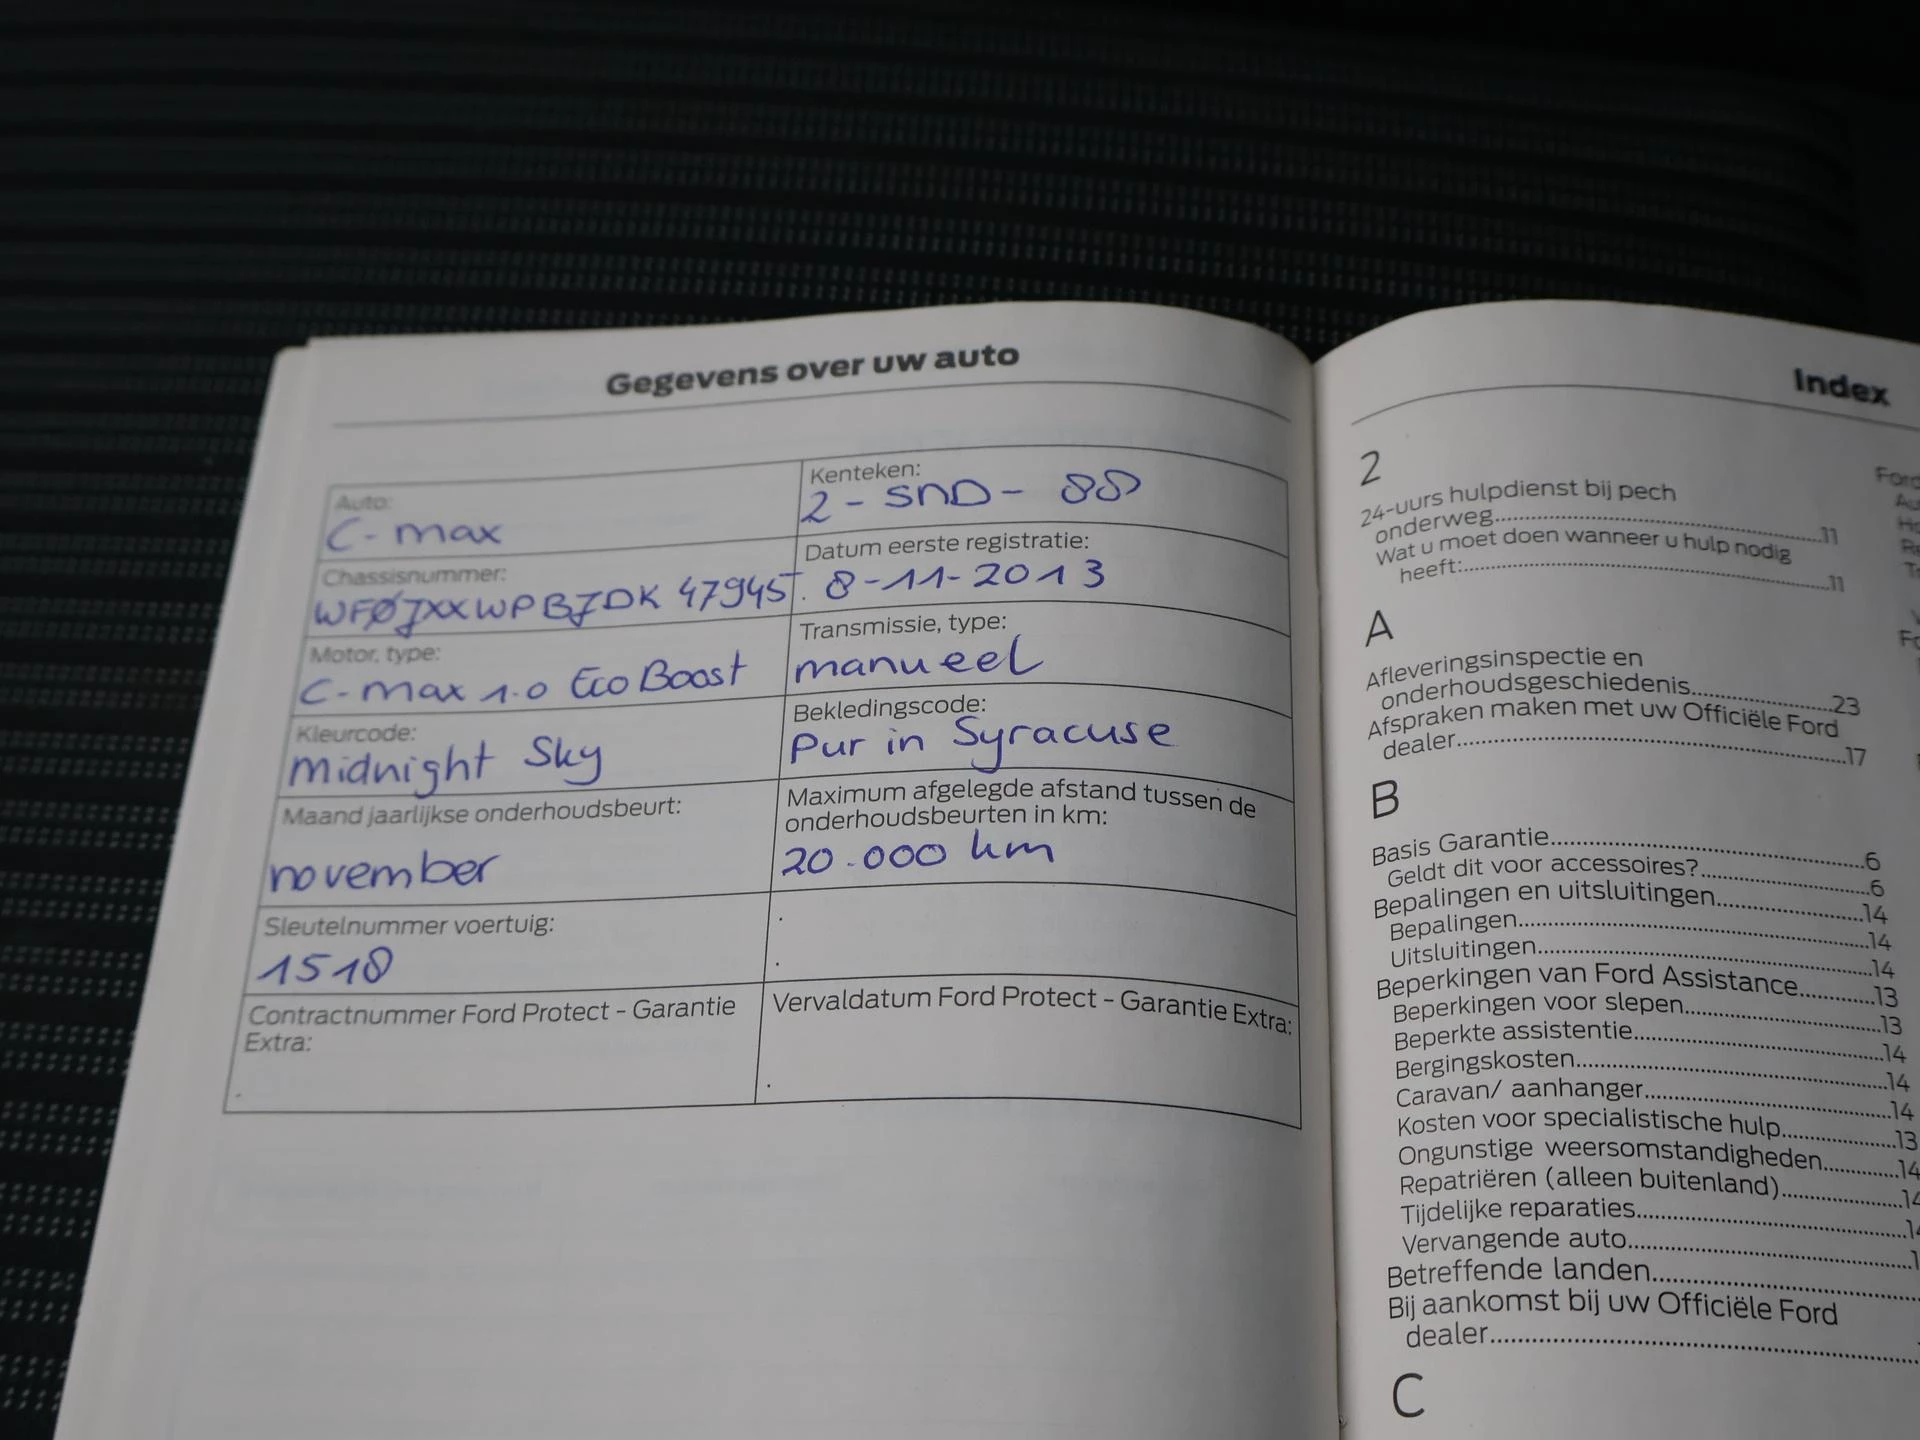 Gegevens over uw auto
Auto:
C-max
Kenteken:
2-SND-88
Chassisnummer:
WFØJXXWPBJDK47945
Datum eerste registratie:
8-11-2013
Motor, type:
C-max 1.0 EcoBoost
Transmissie, type:
manueel
Kleurcode:
Midnight Sky
Bekledingscode:
Pur in Syracuse
Maand jaarlijkse onderhoudsbeurt:
november
Maximum afgelegde afstand tussen de
onderhoudsbeurten in km:
20.000 km
Sleutelnummer voertuig:
1518
Contractnummer Ford Protect - Garantie
Extra:
Vervaldatum Ford Protect - Garantie Extra:
Index
2
24-uurs hulpdienst bij pech
onderweg...11
Wat u moet doen wanneer u hulp nodig
heeft:...11
A
Afleveringsinspectie en
onderhoudsgeschiedenis...23
Afspraken maken met uw Officiële Ford
dealer...17
B
Basis Garantie...6
Geldt dit voor accessoires?...6
Bepalingen en uitsluitingen...14
Bepalingen...14
Uitsluitingen...14
Beperkingen van Ford Assistance...13
Beperkingen voor slepen...13
Beperkte assistentie...14
Bergingskosten...14
Caravan/ aanhanger...14
Kosten voor specialistische hulp...13
Ongunstige weersomstandigheden...14
Repatriëren (alleen buitenland)...14
Tijdelijke reparaties...
Vervangende auto...
Betreffende landen...
Bij aankomst bij uw Officiële Ford
dealer...
C
Ford